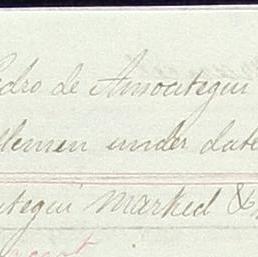 edro de Amoategui
tlemen under date
ategui marked &